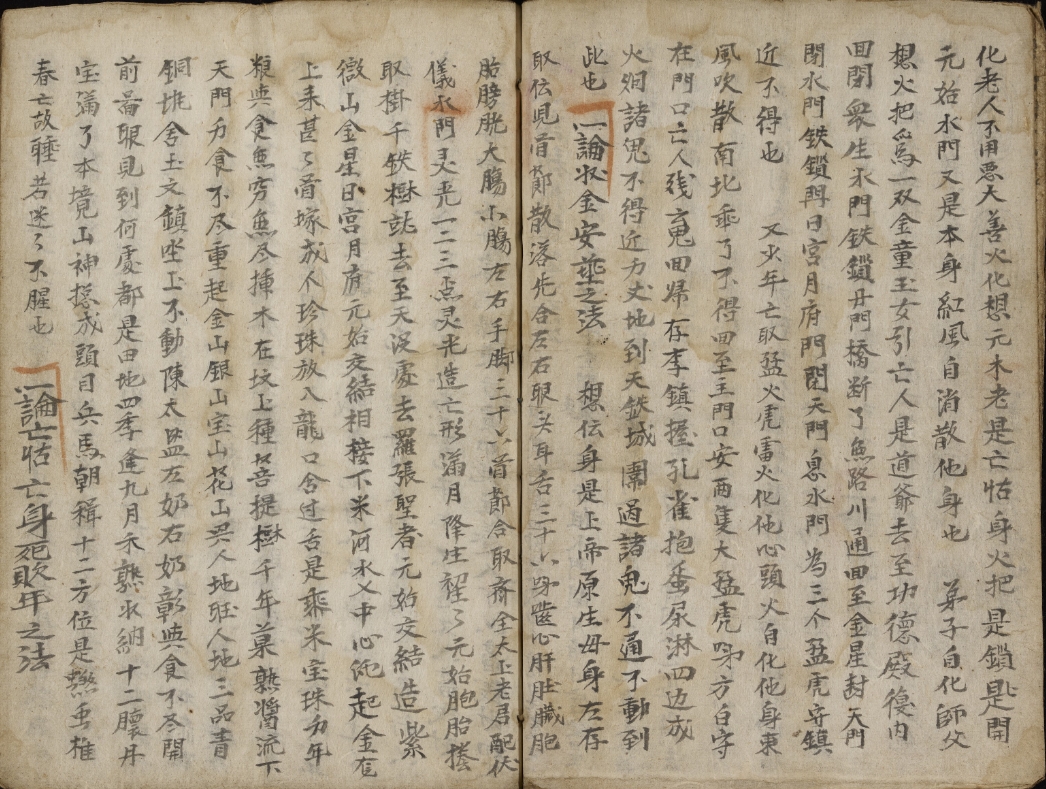 化老人不用惡大善火化想元木老是亡怙身火把是鎖是開
元始水門又是本身紅風自消散他身也 弟子自化師父
想火把為一双金童玉女引亡人是道爺去至功德殿復內
回閉衆生水門鉄鎖丹門橋断了魚路川通回至金星封天門
閉水門鉄鎖門日宮月府門閉天門息水門為三个猛虎守鎮
近不得也 又少年亡取猛火虎雷火化他心頭火自化他身東
風吹散南北乖了不得回至主門口安両隻大猛虎呀方白守
在門口亡人残夌回帰存李鎮握孔雀抱蛋尿淋四边成
火烟諸鬼不得近方丈地到天鉄城圍過諸鬼不通不動到
此也 一論收金安葬之法 想伝身是上帝原生母身左存
取伝見首節散落先合左右眼头耳舌三十六呀齒心肝肚臟胞
胎膀胱大腸小腸左右手脚三十六首節合取齊全太上老君配伏
儀水門灵光一二三点灵光造亡形滿月降生裎了元始胞胎捲
取掛千鉄樹就去至天淀處去羅張聖者元始交結造紫
微山金星日宮月府元始交結相接下米河水乂中心仛起金衣
上来甚了首塚成不珍珠放入龍口含过舌是乘米宝珠万年
粮與食無穷無尽揷木在坟上種菩提樹千年菓熟醬流下
天門方食不尽重起金山銀山宝山花山买人地旺人地三品青
銅堆舍玉文鎮坐上不動陳太盐左奶右奶彰與食不尽開
前畨眼見到何處都是田地四季逢九月禾熟收納十二臕丹
宝滿了本境山神摇成頭目兵馬朝稱十二方位是燃垂椎
春亡故睡若迷了不腥也 一論亡怙亡身犯敗年之法